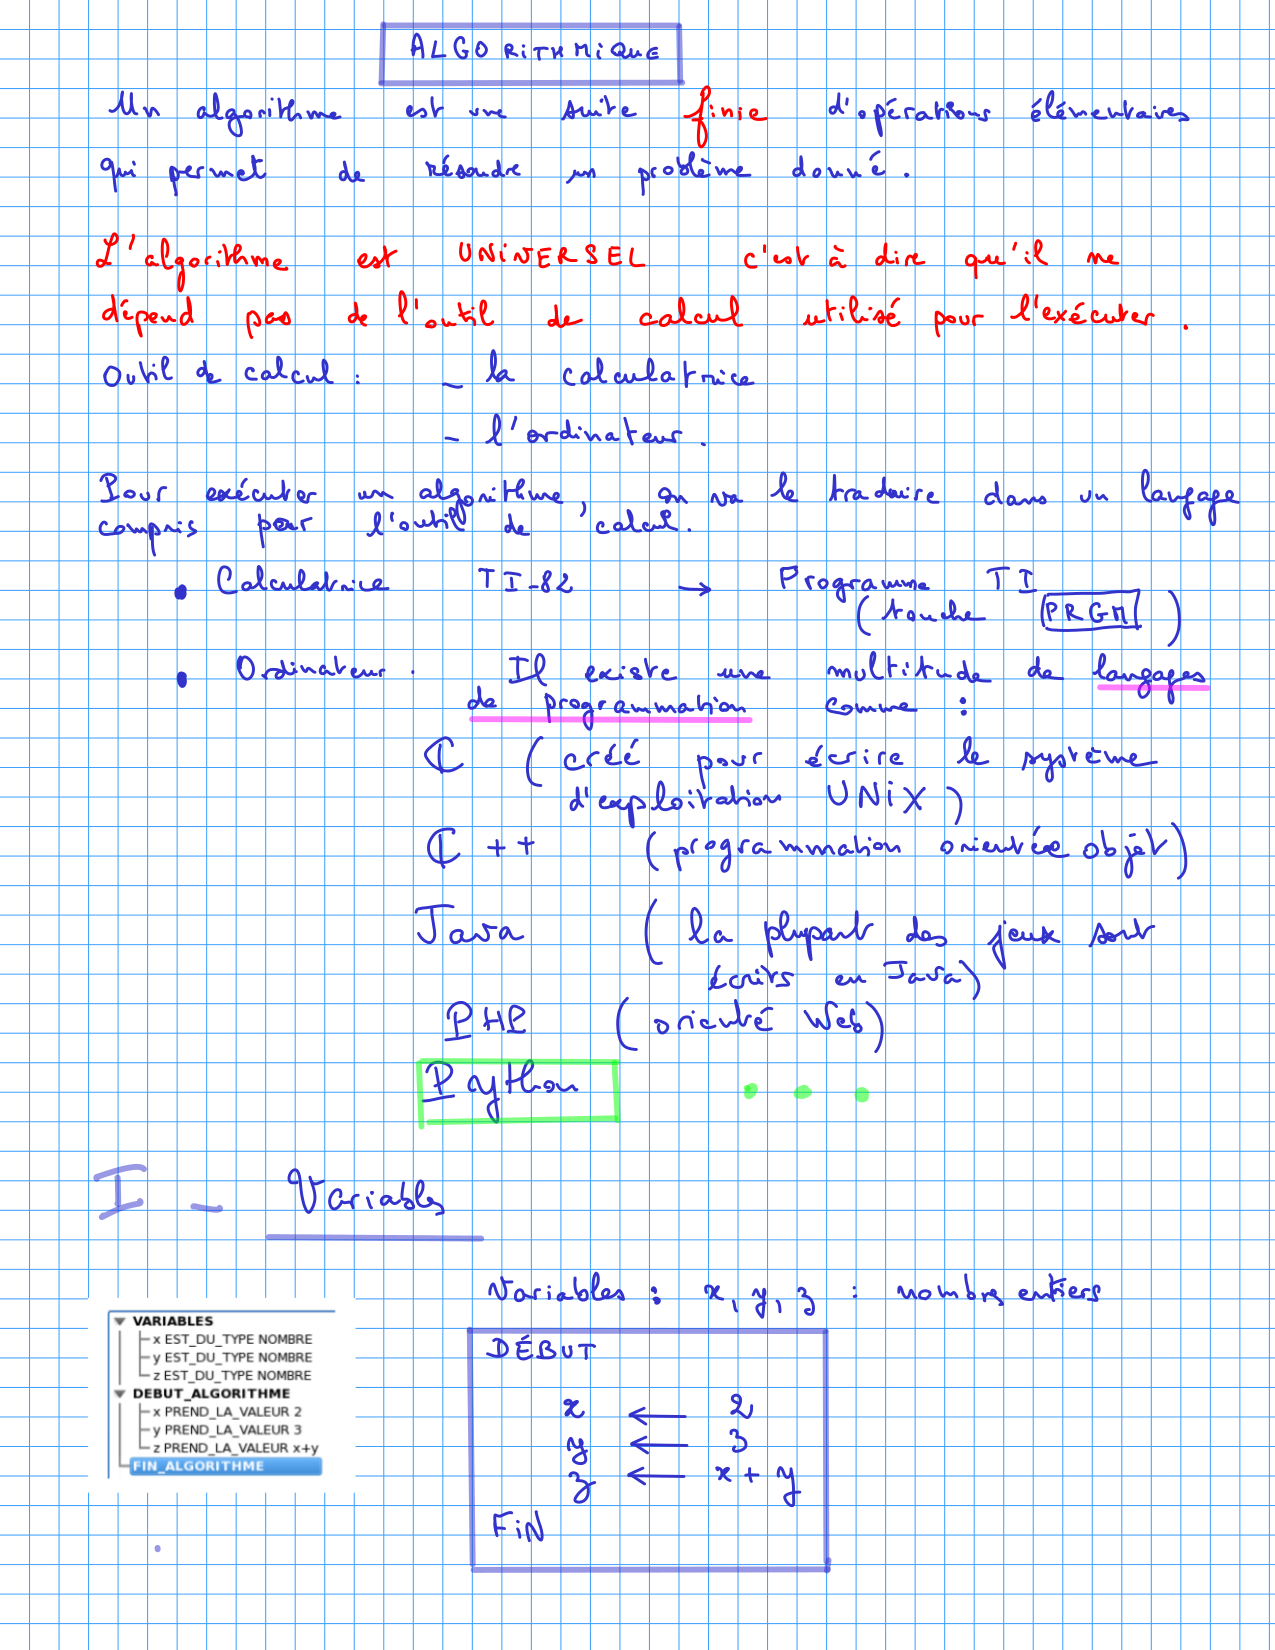 ALGORITHMIQUE
Un algorithme est une suite finie d'opérations élémentaires
qui permet de résoudre un problème donné.
L'algorithme est UNIVERSEL c'est à dire qu'il ne
dépend pas de l'outil de calcul utilisé pour l'exécuter.
Outil de calcul : - la calculatrice
- l'ordinateur.
Pour exécuter un algorithme, on va le traduire dans un langage
compris par l'outil de calcul.
• Calculatrice TI-82 → Programme TI
(touche PRGM)
• Ordinateur. Il existe une multitude de langages
de programmation comme :
C (créé pour écrire le système
d'exploitation UNIX)
C ++ (programmation orientée objet)
Java (la plupart des jeux sont
écrits en Java)
PHP (orienté Web)
Python . . .
I - Variables
Variables : x, y, z : nombres entiers
VARIABLES
x EST_DU_TYPE NOMBRE
y EST_DU_TYPE NOMBRE
z EST_DU_TYPE NOMBRE
DEBUT_ALGORITHME
x PREND_LA_VALEUR 2
y PREND_LA_VALEUR 3
z PREND_LA_VALEUR x+y
FIN_ALGORITHME
DÉBUT
x ← 2
y ← 3
z ← x + y
FIN